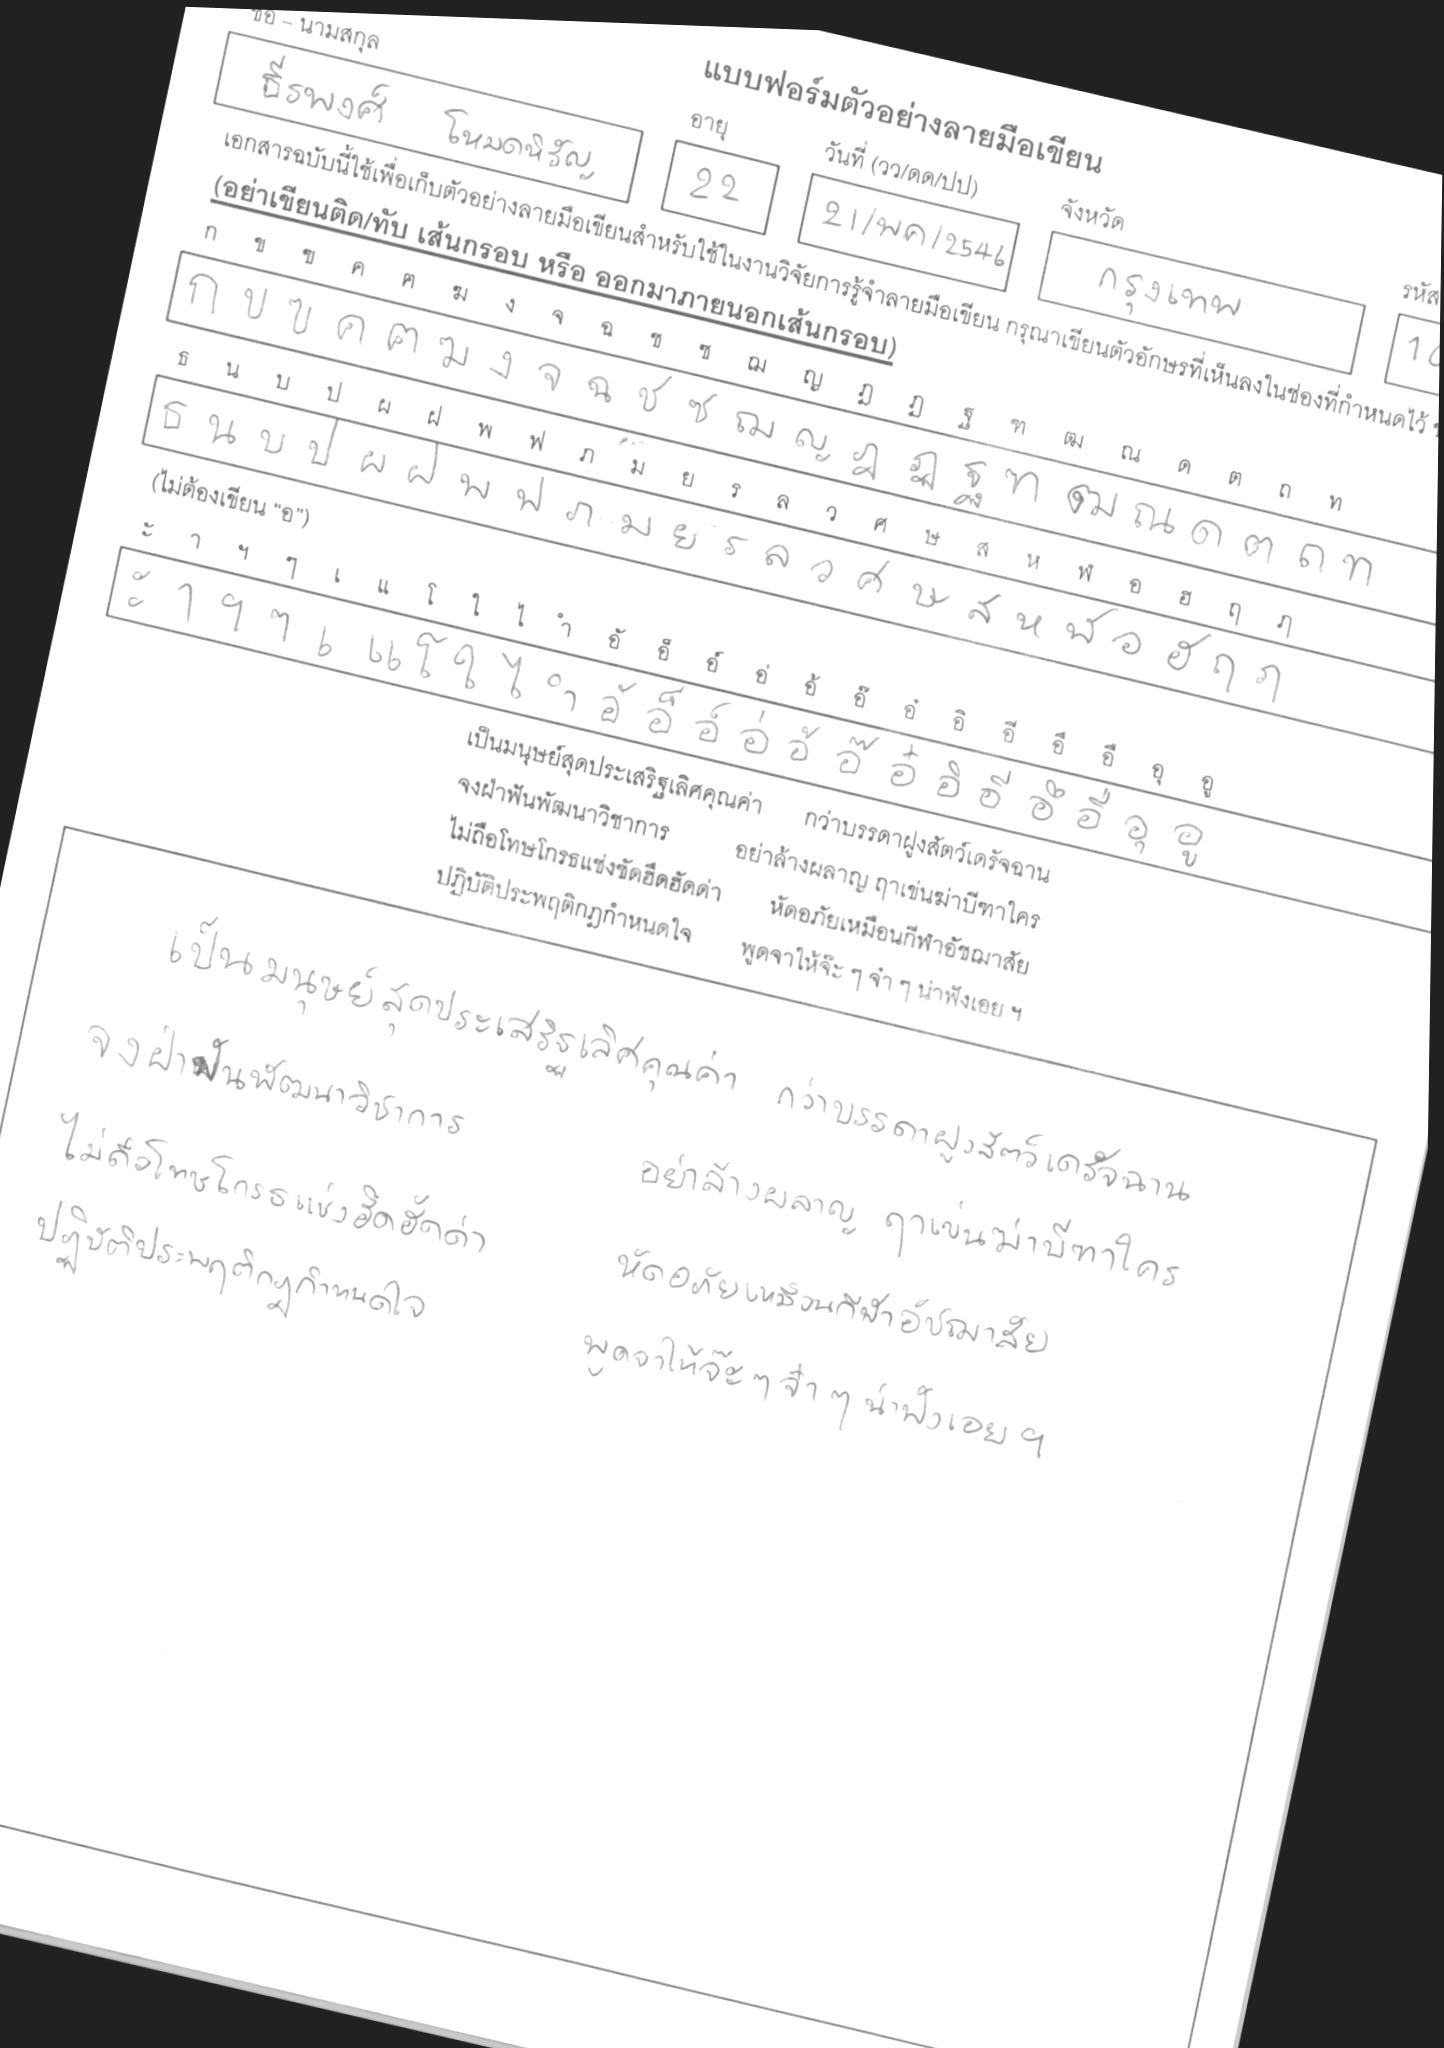 แบบฟอร์มตัวอย่างลายมือเขียน
ชื่อ - นามสกุล
ธีรพงศ์ โหมดหิรัญ
อายุ
22
วันที่ (วว/ดด/ปป)
21/พค/2546
จังหวัด
กรุงเทพ
รหัส
10
เอกสารฉบับนี้ใช้เพื่อเก็บตัวอย่างลายมือเขียนสำหรับใช้ในงานวิจัยการรู้จำลายมือเขียน กรุณาเขียนตัวอักษรที่เห็นลงในช่องที่กำหนดไว้
(อย่าเขียนติด/ทับ เส้นกรอบ หรือ ออกมาภายนอกเส้นกรอบ)
ก ข ฃ ค ฅ ฆ ง จ ฉ ช ซ ฌ ญ ฎ ฏ ฐ ฑ ฒ ณ ด ต ถ ท
ก ข ฃ ค ฅ ฆ ง จ ฉ ช ซ ฌ ญ ฎ ฏ ฐ ฑ ฒ ณ ด ต ถ ท
ธ น บ ป ผ ฝ พ ฟ ภ ม ย ร ล ว ศ ษ ส ห ฬ อ ฮ ฤ ภ
ธ น บ ป ผ ฝ พ ฟ ภ ม ย ร ล ว ศ ษ ส ห ฬ อ ฮ ฤ ภ
(ไม่ต้องเขียน "อ")
ะ้ า ฯ ๆ เ แ โ ใ ไ ำ อั อ็ อ์ อ่ อ้ อ๊ อ๋ อิ อี อึ อื อุ อู
ะ้ า ฯ ๆ เ แ โ ใ ไ ำ อั อ็ อ์ อ่ อ้ อ๊ อ๋ อิ อี อึ อื อุ อู
เป็นมนุษย์สุดประเสริฐเลิศคุณค่า กว่าบรรดาฝูงสัตว์เดรัจฉาน
จงฝ่าฟันพัฒนาวิชาการ อย่าล้างผลาญ ฤาเข่นฆ่าบีฑาใคร
ไม่ถือโทษโกรธแช่งซัดฮึดฮัดด่า หัดอภัยเหมือนกีฬาอัชฌาสัย
ปฏิบัติประพฤติกฎกำหนดใจ พูดจาให้จ๊ะ ๆ จ๋า ๆ น่าฟังเอย ฯ
เป็นมนุษย์สุดประเสริฐเลิศคุณค่า กว่าบรรดาฝูงสัตว์เดรัจฉาน
จงฝ่าฟันพัฒนาวิชาการ อย่าล้างผลาญ ฤาเข่นฆ่าบีฑาใคร
ไม่ถือโทษโกรธแช่งฮึดฮัดด่า หัดอภัยเหมือนกีฬาอัชฌาสัย
ปฏิบัติประพฤติกฏกำหนดใจ พูดจาให้จ๊ะ ๆ จ๋า ๆ น่าฟังเอย ฯ